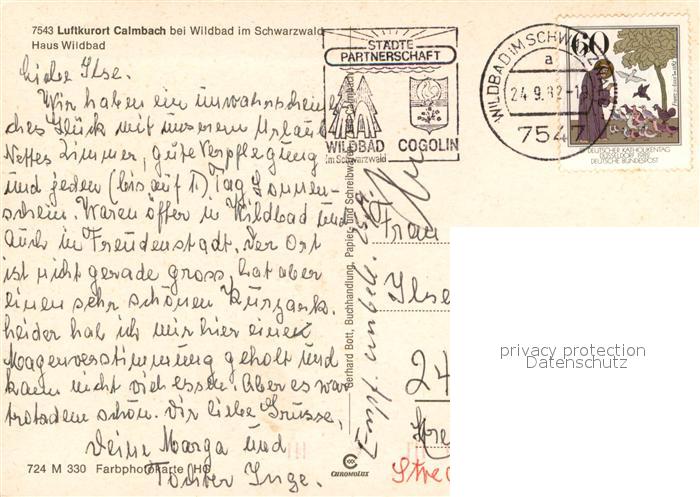 7543 Luftkurort Calmbach bei Wildbad im Schwarzwald
Haus Wildbad
Liebe Ilse.
Wir haben ein unwahrschein-
liches Glück mit unserem Urlaub
Nettes Zimmer, gute Verpflegung
und jeden (bis auf 1) Tag Sonnen-
schein. Waren öfter in Wildbad und
auch in Freudenstadt. Der Ort
ist nicht gerade gross, hat aber
einen sehr schönen Kurpark.
Leider hab ich mir hier einen
Magenverstimmung geholt und
kann nicht viel essen. Aber es war
trotzdem schön. Dir liebe Grüsse,
Deine Marga und
Tochter Inge.
724 M 330 Farbphotokarte (HC
Gerhard Bott, Buchhandlung, Papier- und Schreibwaren, Calmbach
CHROMOLUX
STÄDTE
PARTNERSCHAFT
WILDBAD
im Schwarzwald
COGOLIN
WILDBAD IM SCHWARZWALD
a
24.9.82-18
7547
60
DEUTSCHER KATHOLIKENTAG
DÜSSELDORF 1982
DEUTSCHE BUNDESPOST
Frau
Ilse
24
privacy protection
Datenschutz